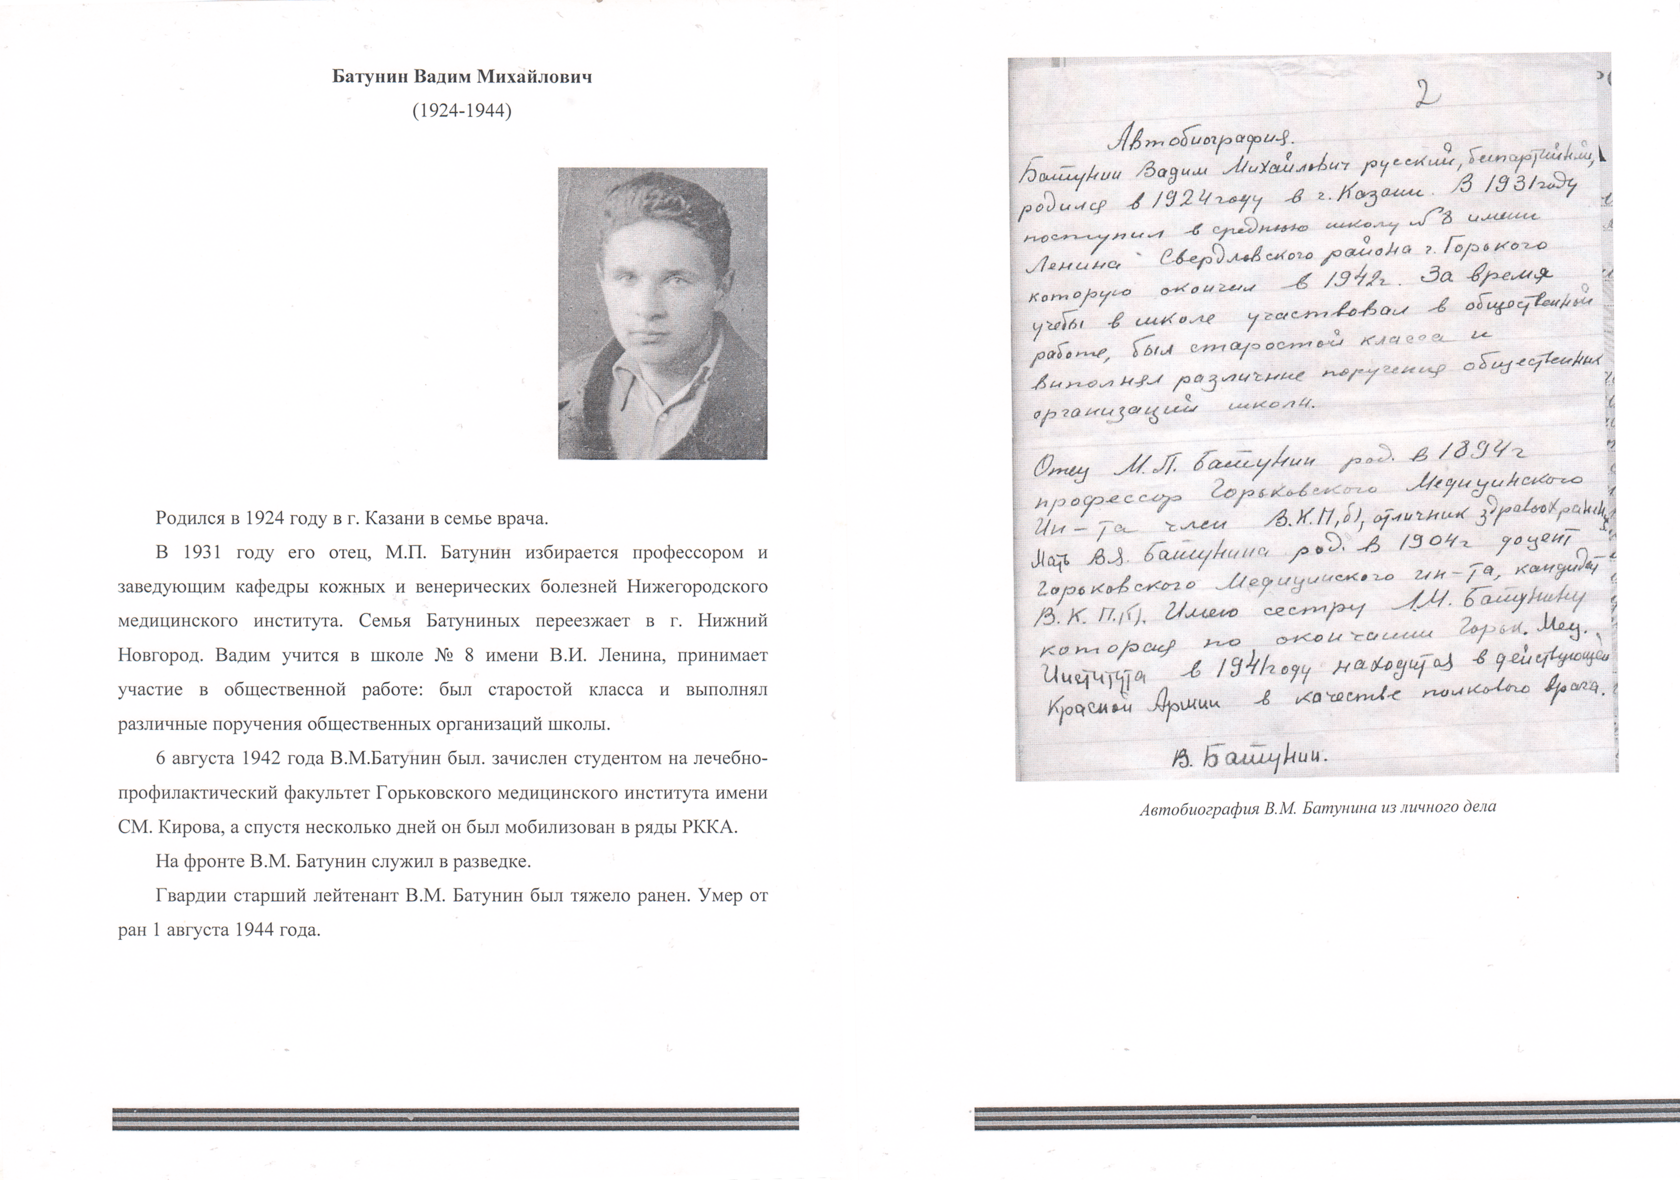 Батунин Вадим Михайлович
(1924-1944)
Родился в 1924 году в г. Казани в семье врача.
В 1931 году его отец, М.П. Батунин избирается профессором и
заведующим кафедры кожных и венерических болезней Нижегородского
медицинского института. Семья Батуниных переезжает в г. Нижний
Новгород. Вадим учится в школе № 8 имени В.И. Ленина, принимает
участие в общественной работе: был старостой класса и выполнял
различные поручения общественных организаций школы.
6 августа 1942 года В.М.Батунин был. зачислен студентом на лечебно-
профилактический факультет Горьковского медицинского института имени
СМ. Кирова, а спустя несколько дней он был мобилизован в ряды РККА.
На фронте В.М. Батунин служил в разведке.
Гвардии старший лейтенант В.М. Батунин был тяжело ранен. Умер от
ран 1 августа 1944 года.
2
Автобиография.
Батунин Вадим Михайлович русский, беспартийный,
родился в 1924 году в г. Казани. В 1931 году
поступил в среднюю школу № 8 имени
Ленина Свердловского района г. Горького
которую окончил в 1942г. За время
учебы в школе участвовал в общественной
работе, был старостой класса и
выполнял различные поручения общественных
организаций школы.
Отец М.П. Батунин род. в 1894 г
профессор Горьковского Медицинского
Ин-та член В.К.П.(б), отличник здравоохранения
Мать В.Я. Батунина род. в 1904 г доцент
Горьковского Медицинского ин-та, кандидат
В.К.П.(б). Имею сестру Л.М. Батунину
которая по окончании Горьк. Мед.
Института в 1941 году находится в действующей
Красной Армии в качестве полкового врача.
В. Батунин.
Автобиография В.М. Батунина из личного дела